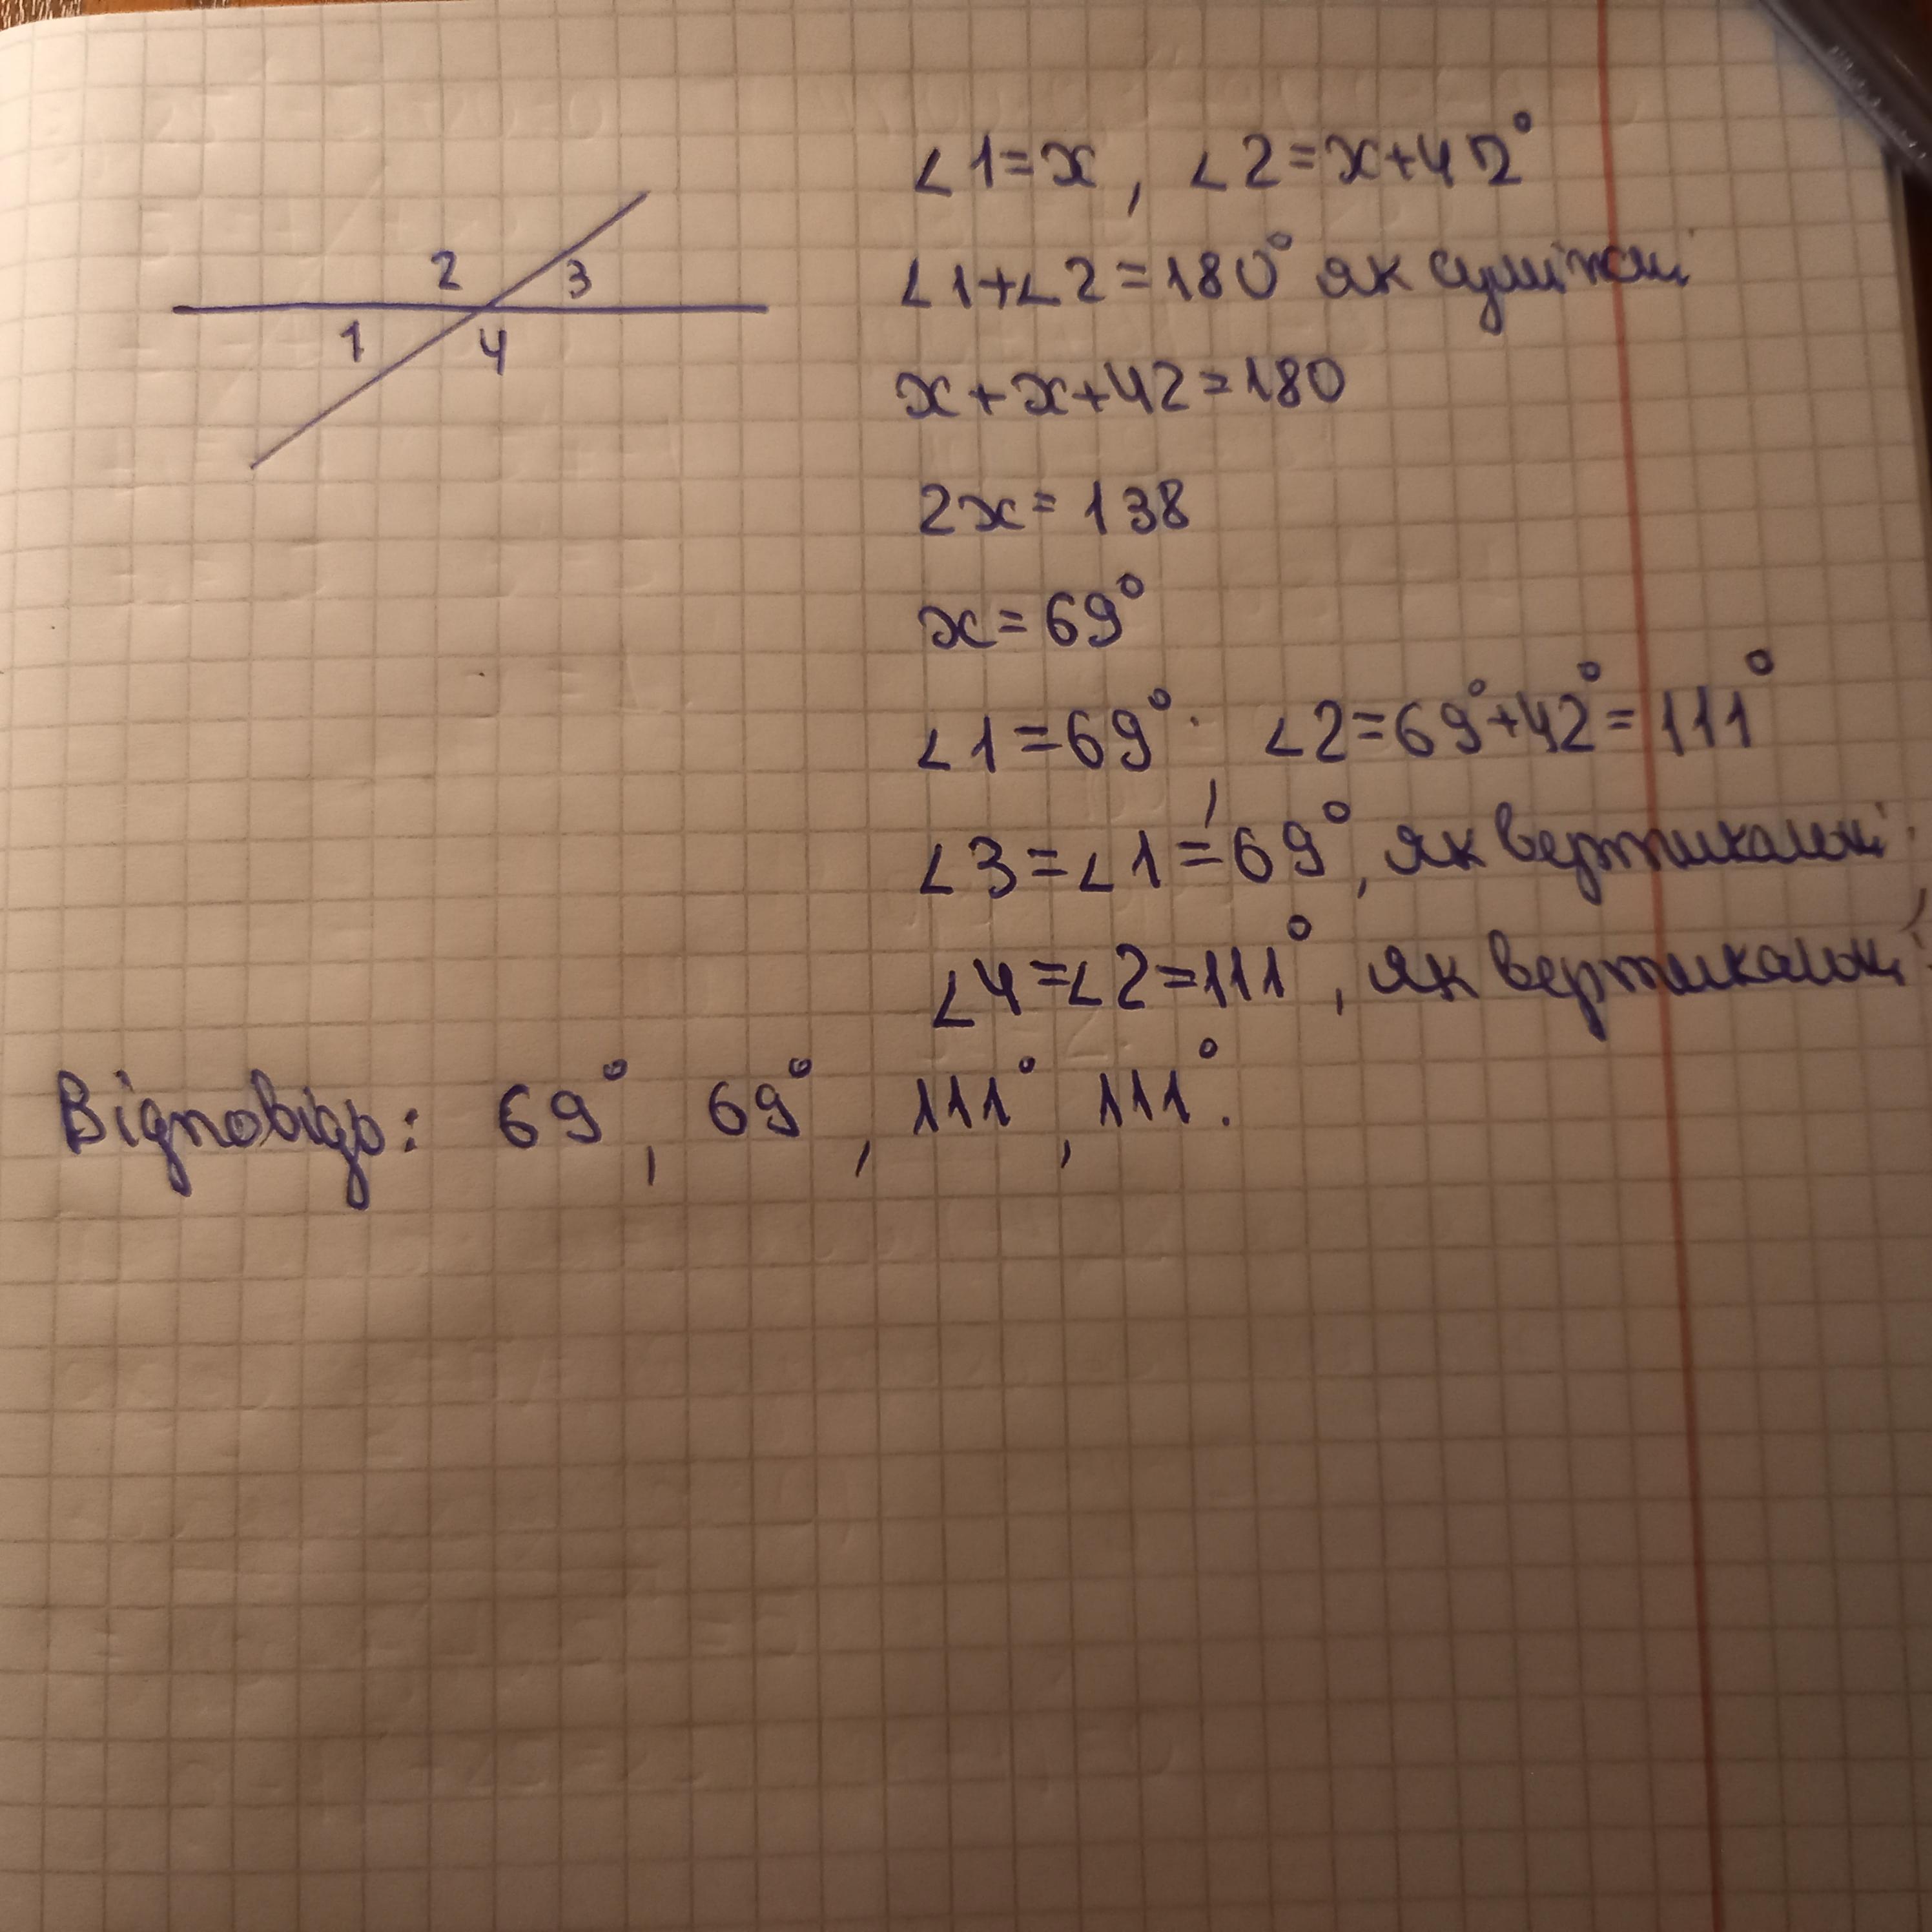 2
3
1
4
∠1=x, ∠2=x+42°
∠1+∠2=180° як суміжні
x+x+42=180
2x=138
x=69°
∠1=69°; ∠2=69°+42°=111°
∠3=∠1=69°, як вертикальні;
∠4=∠2=111°, як вертикальні.
Відповідь: 69°, 69°, 111°, 111°.